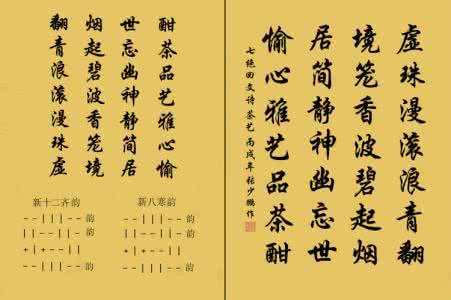 虚珠漫滚浪青翻
境笼香波碧起烟
居简静神幽忘世
愉心雅艺品茶酣
七绝回文诗 茶艺 丙戌年 张少鹏作
酣茶品艺雅心愉
世忘幽神静简居
烟起碧波香笼境
翻青浪滚漫珠虚
新十二齐韵
韵
韵
韵
新八寒韵
韵
韵
韵